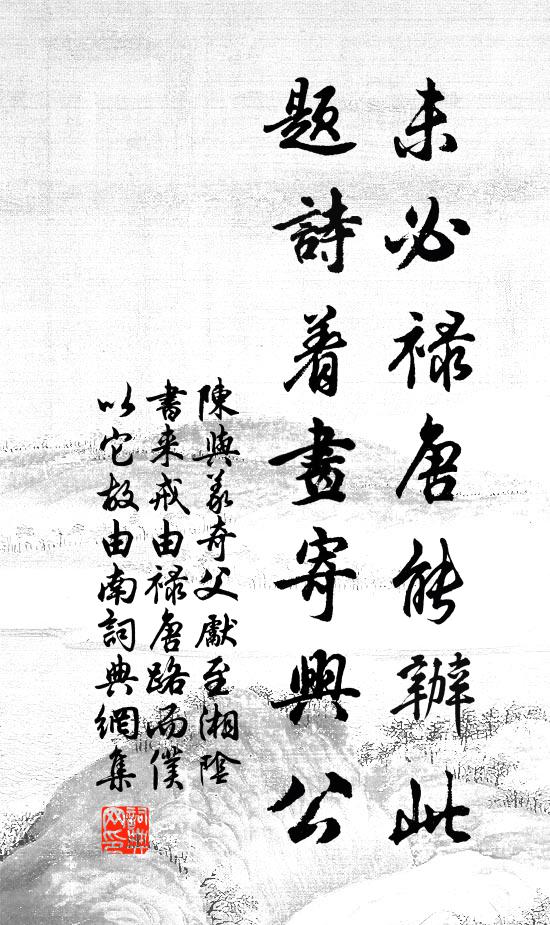 未必禄唐能辦此
題詩着畫寄興公
陳與義奇父獻至湘陰
書来戒由禄唐路而僕
以它故由南詞典網集
詞典
网印